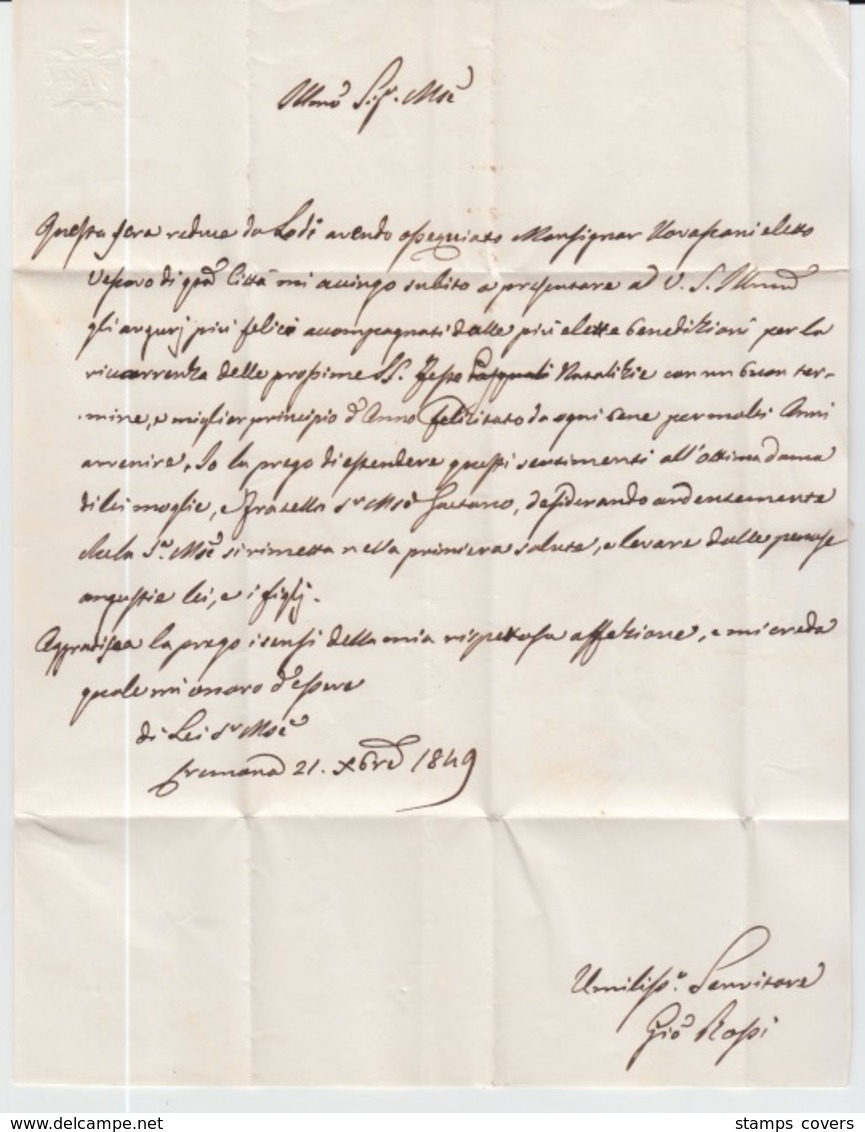 Illmo Sig.r Msè
Questa sera reduce da Lodi avendo ossequiato Monsignor Novascani eletto
Vescovo di qta Città mi accingo subito a presentare a V. S. Illma
gli augurj più felici accompagnati dalle più elette benedizioni per la
ricorrenza delle prossime SS. Feste Pasquali Natalizie con un buon ter-
mine, e miglior principio d'Anno felicitato da ogni bene per molti Anni
avvenire. Io la prego di estendere questi sentimenti all'ottima dama
di lei moglie, e fratello Sr Msè Gaetano, desiderando ardentemente
che la Sa Msa si rimetta nella primiera salute, e levare dalle penose
angustie lei, e i figlj.
Aggradisca la prego i sensi della mia rispettosa affezione, e mi creda
quale mi onoro d'essere
di Lei Sr Msè
Cremona 21. Xbre 1849
Umiliss.o Servitore
Gio Rossi
www.delcampe.net
stamps covers